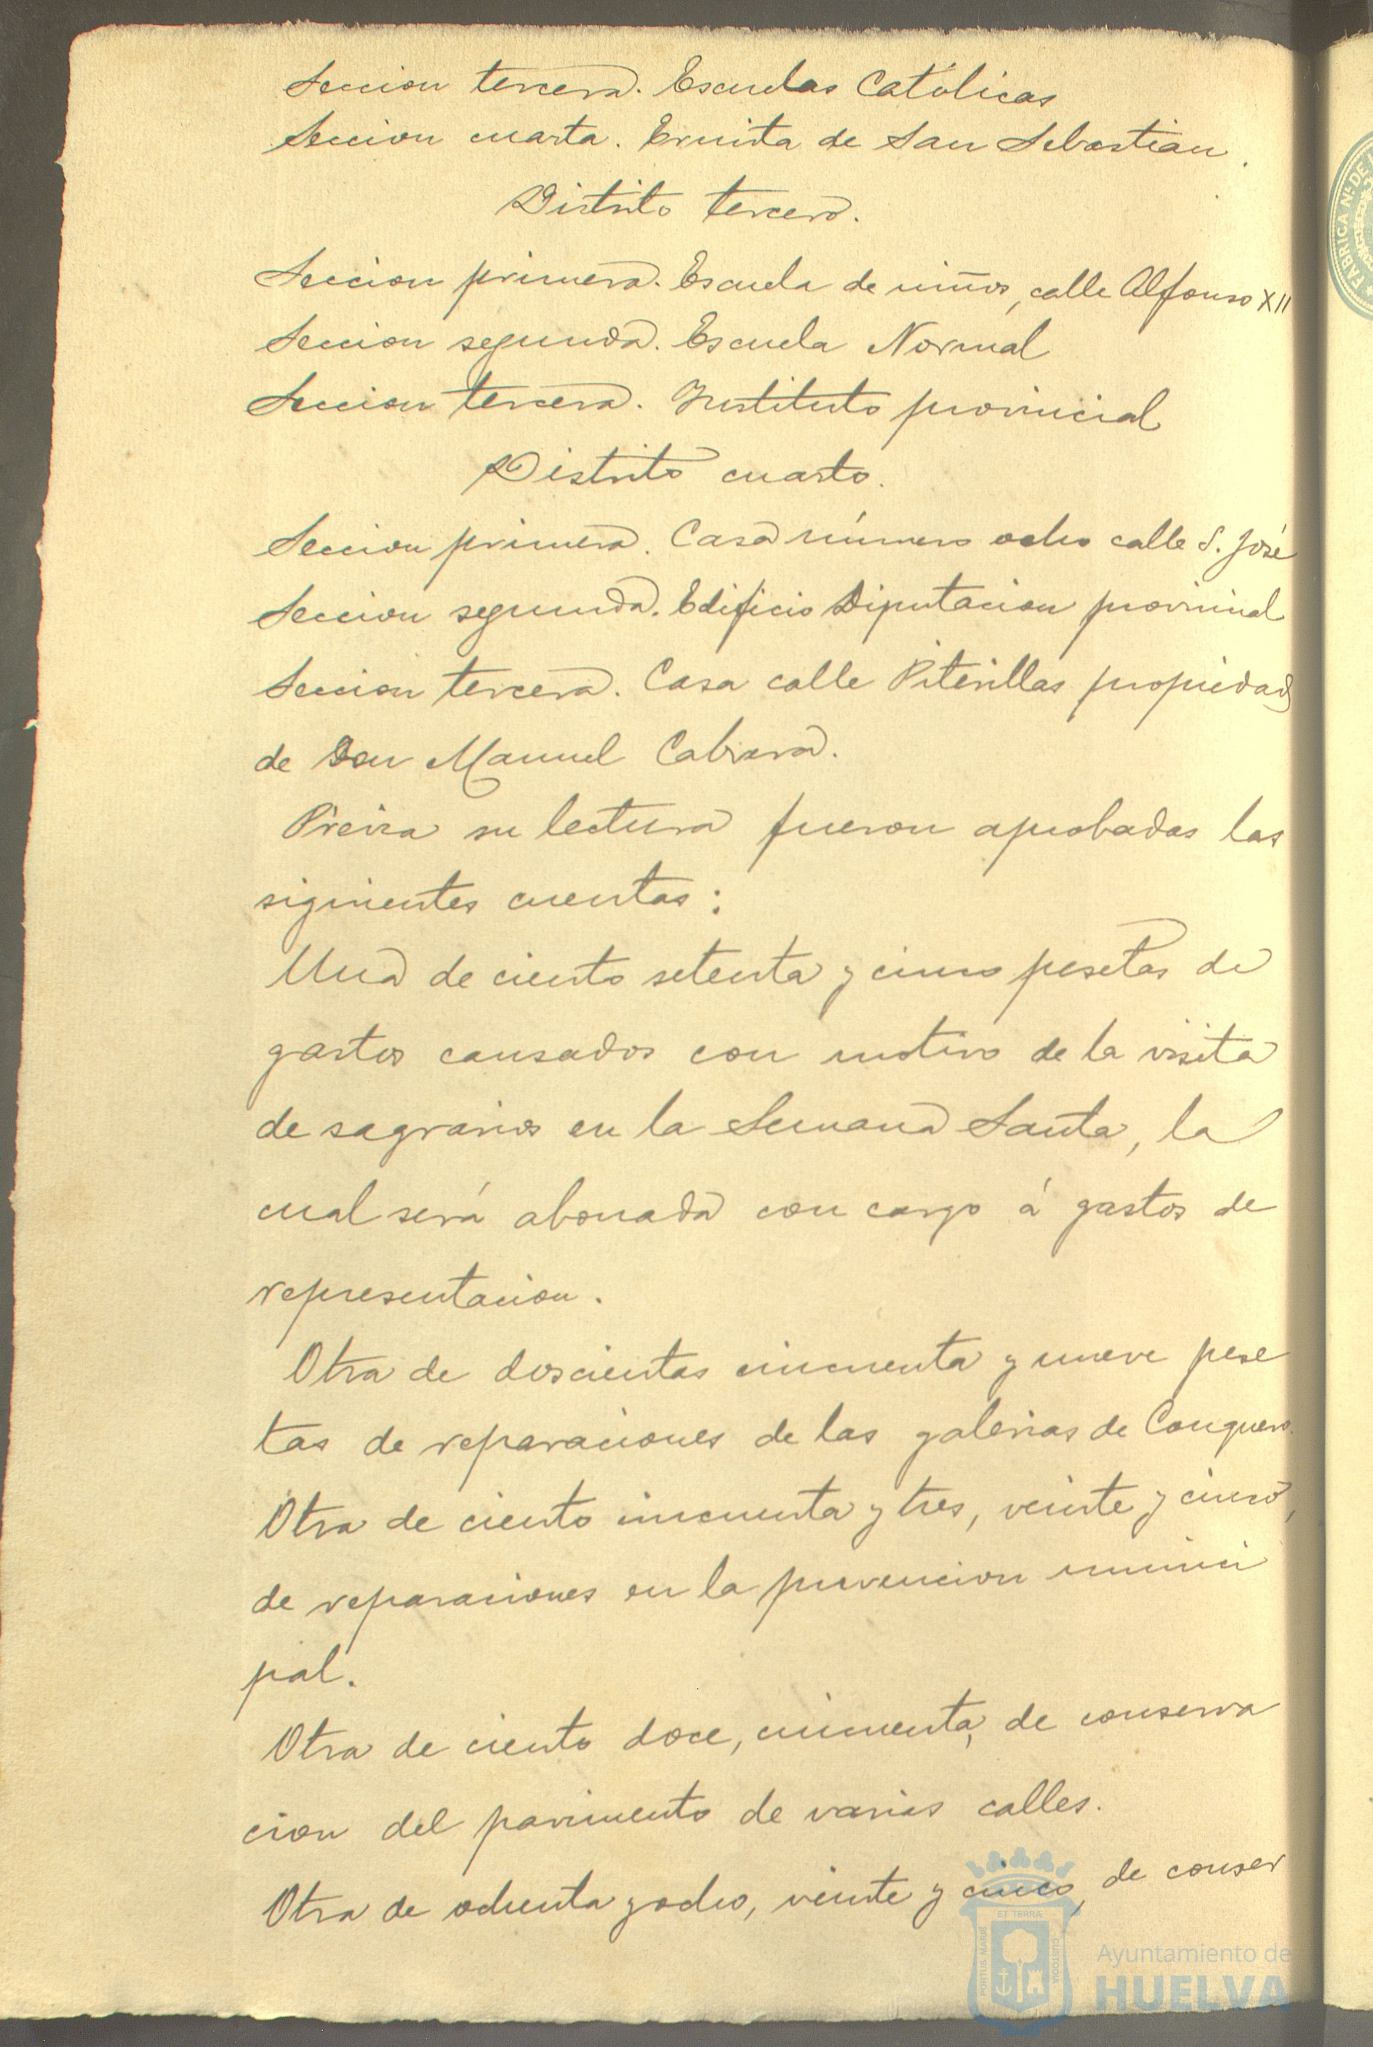 Seccion tercera. Escuelas Católicas
Seccion cuarta. Ermita de San Sebastian.
Distrito tercero.
Seccion primera. Escuela de niños, calle Alfonso XII
Seccion segunda. Escuela Normal
Seccion tercera. Instituto provincial
Distrito cuarto.
Seccion primera. Casa número ocho calle S. José
Seccion segunda. Edificio Diputacion provincial
Seccion tercera. Casa calle Piterillas propiedad
de Don Manuel Cabrera.
Previa su lectura fueron aprobadas las
siguientes cuentas:
Una de ciento setenta y cinco pesetas de
gastos causados con motivo de la visita
de sagrarios en la Semana Santa, la
cual será abonada con cargo á gastos de
representacion.
Otra de doscientas cincuenta y nueve pese
tas de reparaciones de las galerias de Conquero.
Otra de ciento cincuenta y tres, veinte y cinco,
de reparaciones en la prevencion munici
pal.
Otra de ciento doce, cincuenta, de conserva
cion del pavimento de varias calles.
Otra de ochenta y ocho, veinte y cinco, de conser
FABRICA NL. DE
PORTUS MARIS
ET TERRAE
CUSTODIA
Ayuntamiento de
HUELVA